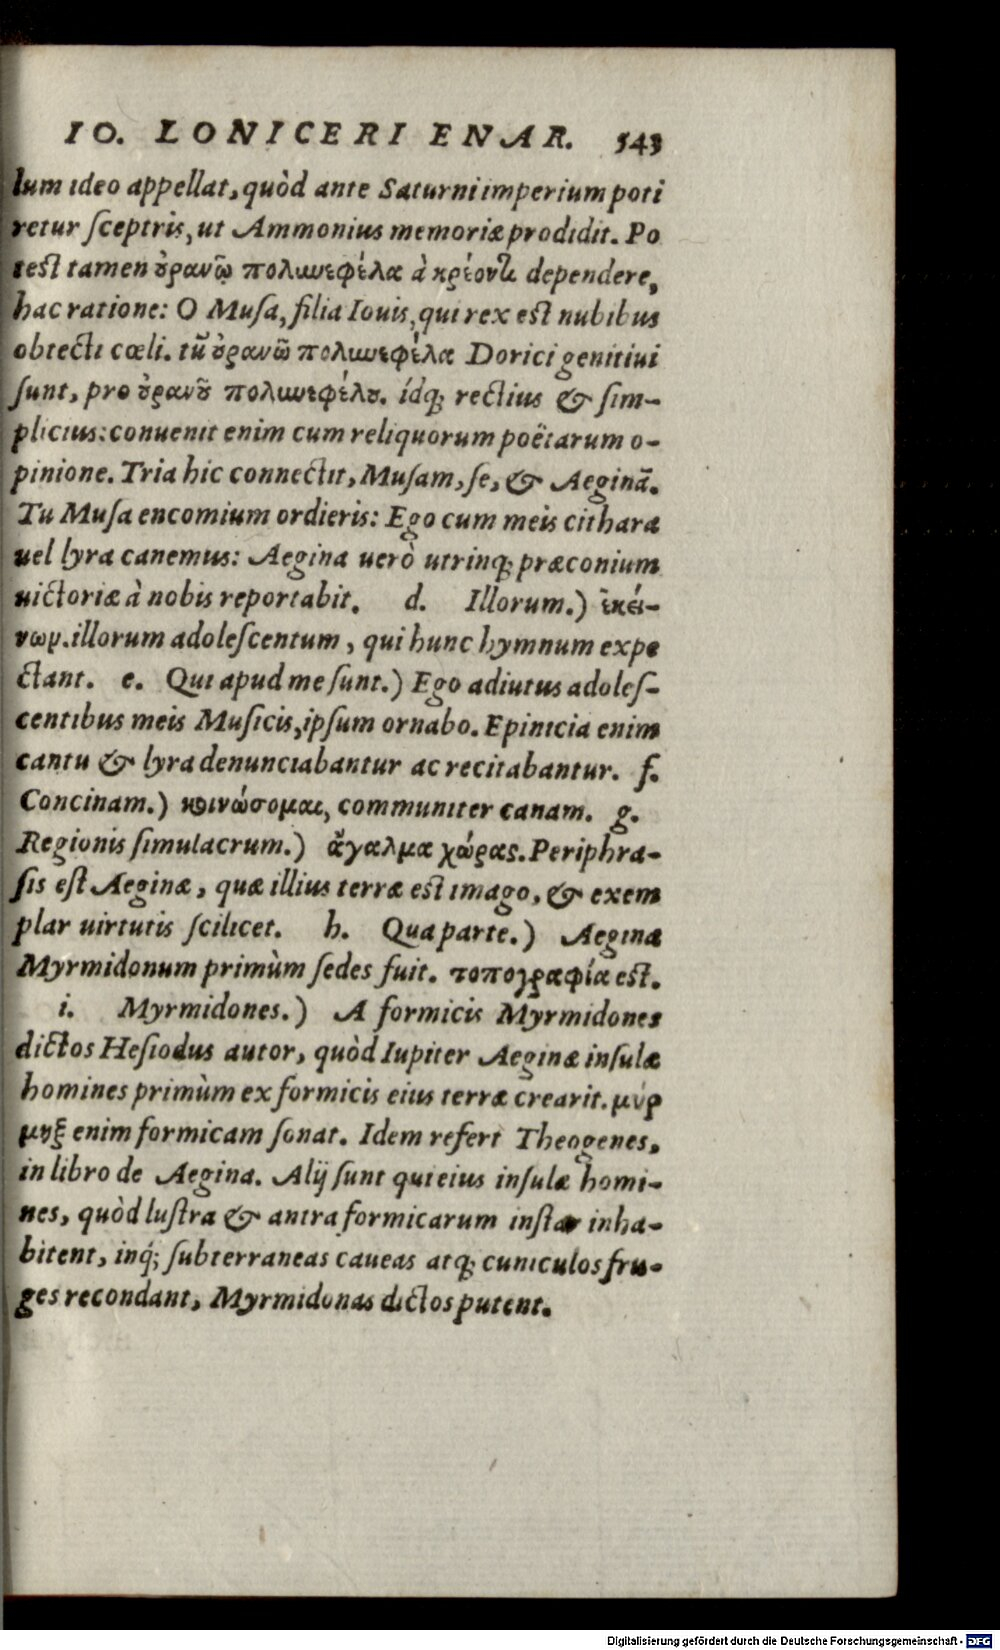 IO. LONICERI ENAR. 543
lum ideo appellat, quòd ante Saturni imperium poti
retur ſceptris, ut Ammonius memoriæ prodidit. Po
test tamen ȣ̓ρανῷ πολυνεφέλα à κρέοντι dependere,
hac ratione: O Muſa, filia Iouis, qui rex est nubibus
obtecti cœli. τῦ ȣ̓ρανῶ πολυνεφέλα Dorici genitiui
ſunt, pro ȣ̓ρανȣ͂ πολυνεφέλȣ. idq; rectius & ſim-
plicius: conuenit enim cum reliquorum poëtarum o-
pinione. Tria hic connectit, Muſam, ſe, & Aeginā.
Tu Muſa encomium ordieris: Ego cum meis cithara
uel lyra canemus: Aegina uerò utrinq; præconium
uictoriæ à nobis reportabit. d. Illorum.) ἐκεί-
νων. illorum adoleſcentum, qui hunc hymnum expe
ctant. e. Qui apud me ſunt.) Ego adiutus adoleſ-
centibus meis Muſicis, ipſum ornabo. Epinicia enim
cantu & lyra denunciabantur ac recitabantur. f.
Concinam.) κοινώσομαι, communiter canam. g.
Regionis ſimulacrum.) ἄγαλμα χώρας. Periphra-
ſis eſt Aeginæ, quæ illius terræ est imago, & exem
plar uirtutis ſcilicet. h. Qua parte.) Aegina
Myrmidonum primùm ſedes fuit. τοπογραφία est.
i. Myrmidones.) A formicis Myrmidones
dictos Heſiodus autor, quòd Iupiter Aeginæ inſulæ
homines primùm ex formicis eius terræ crearit. μύρ
μηξ enim formicam ſonat. Idem refert Theogenes,
in libro de Aegina. Alij ſunt qui eius inſulæ homi-
nes, quòd luſtra & antra formicarum inſtar inha-
bitent, inq́; ſubterraneas caueas atq; cuniculos fru-
ges recondant, Myrmidonas dictos putent.
Digitalisierung gefördert durch die Deutsche Forschungsgemeinschaft - DFG